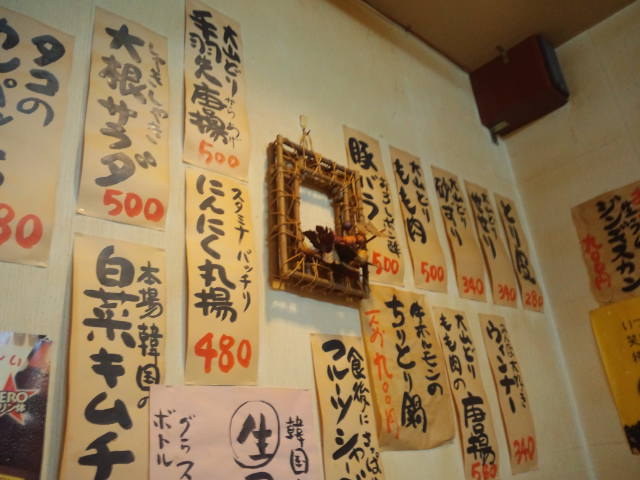 タコの
しゃきしゃき
大根サラダ
500
大山どり
手羽先唐揚
500
スタミナ バッチリ
にんにく丸揚
480
本場韓国の
白菜キムチ
80
豚バラ
おろしぽん酢
500
大山どり
もも肉
500
大山どり
砂ずり
340
大山どり
340
とり皮
280
牛ホルモンの
ちりとり鍋
九〇〇円
大山どり
もも肉の
唐揚
580
ウィンナー
340
食後にさっぱ
フルーツシャー
韓国
生
グラス
ボトル
生ラム
ジンギスカン
九〇〇円